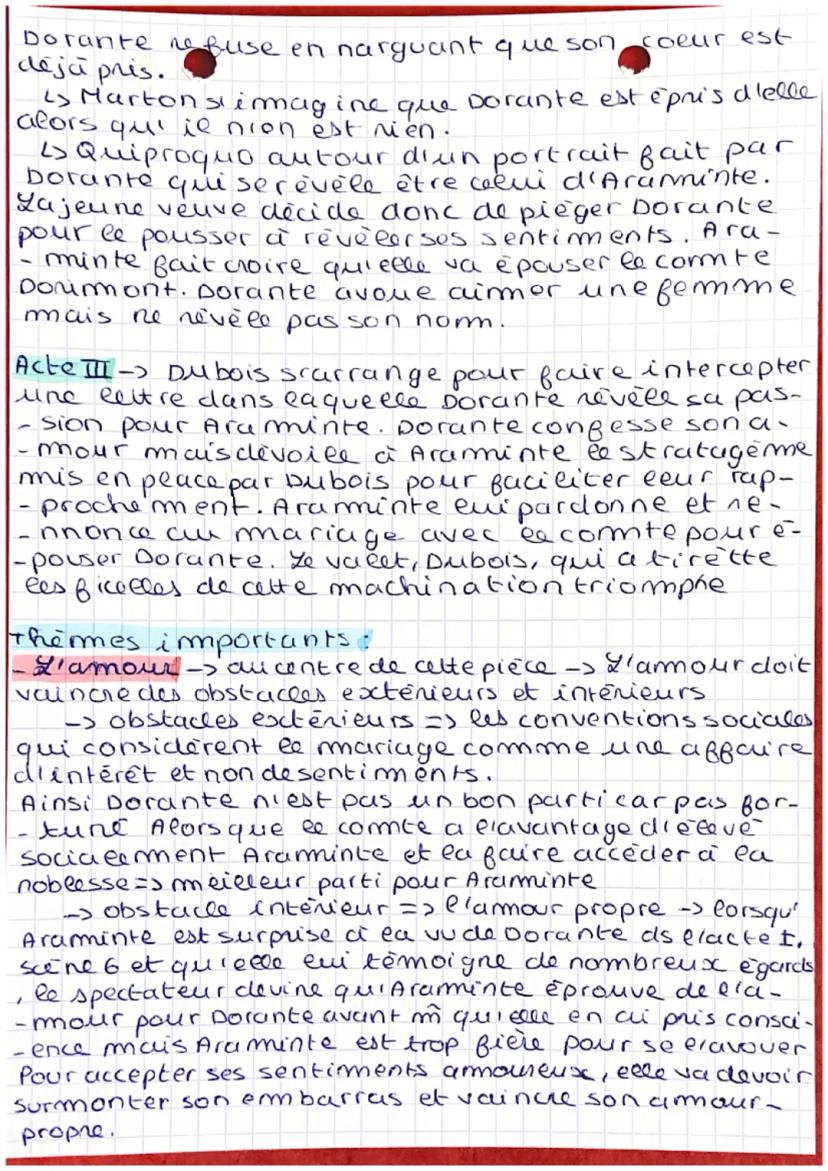 Dorante refuse en narguant que son coeur est
déjà pris.
↳ Marton s'imagine que Dorante est épris d'elle
alors qu'il n'on est rien.
↳ Quiproquo autour d'un portrait fait par
Dorante qui se révèle être celui d'Araminte.
La jeune veuve décide donc de piéger Dorante
pour le pousser à révéler ses sentiments. Ara-
- minte fait croire qu'elle va épouser le comte
Doumont. Dorante avoue aimer une femme
mais ne révèle pas son nom.
Acte III -> Dubois s'arrange pour faire intercepter
une lettre dans laquelle Dorante révèle sa pas-
- sion pour Araminte. Dorante confesse son a-
- mour mais dévoile à Araminte le stratagème
mis en place par Dubois pour faciliter leur rap-
- prochement. Araminte lui pardonne et re-
- nnonce au mariage avec le comte pour é-
- pouser Dorante. Le valet, Dubois, qui a tirette
les ficelles de cette machination triomphe
Thèmes importants :
- L'amour -> au centre de cette pièce -> L'amour doit
vaincre des obstacles extérieurs et intérieurs
-> obstacles extérieurs => les conventions sociales
qui considèrent le mariage comme une affaire
d'intérêt et non de sentiments.
Ainsi Dorante n'est pas un bon parti car pas for-
- tuné Alors que le comte a l'avantage d'élevé
socialement Araminte et la faire accéder à la
noblesse => meilleur parti pour Araminte
-> obstacle intérieur => l'amour propre -> lorsqu'
Araminte est surprise à la vu de Dorante ds l'acte I,
scène 6 et qu'elle lui témoigne de nombreux égards
, le spectateur devine qu'Araminte éprouve de l'a-
- mour pour Dorante avant m̂ qu'elle en ai pris consci-
- ence mais Araminte est trop fière pour se l'avouer
Pour accepter ses sentiments amoureux, elle va devoir
surmonter son embarras et vaincre son amour-
propre.